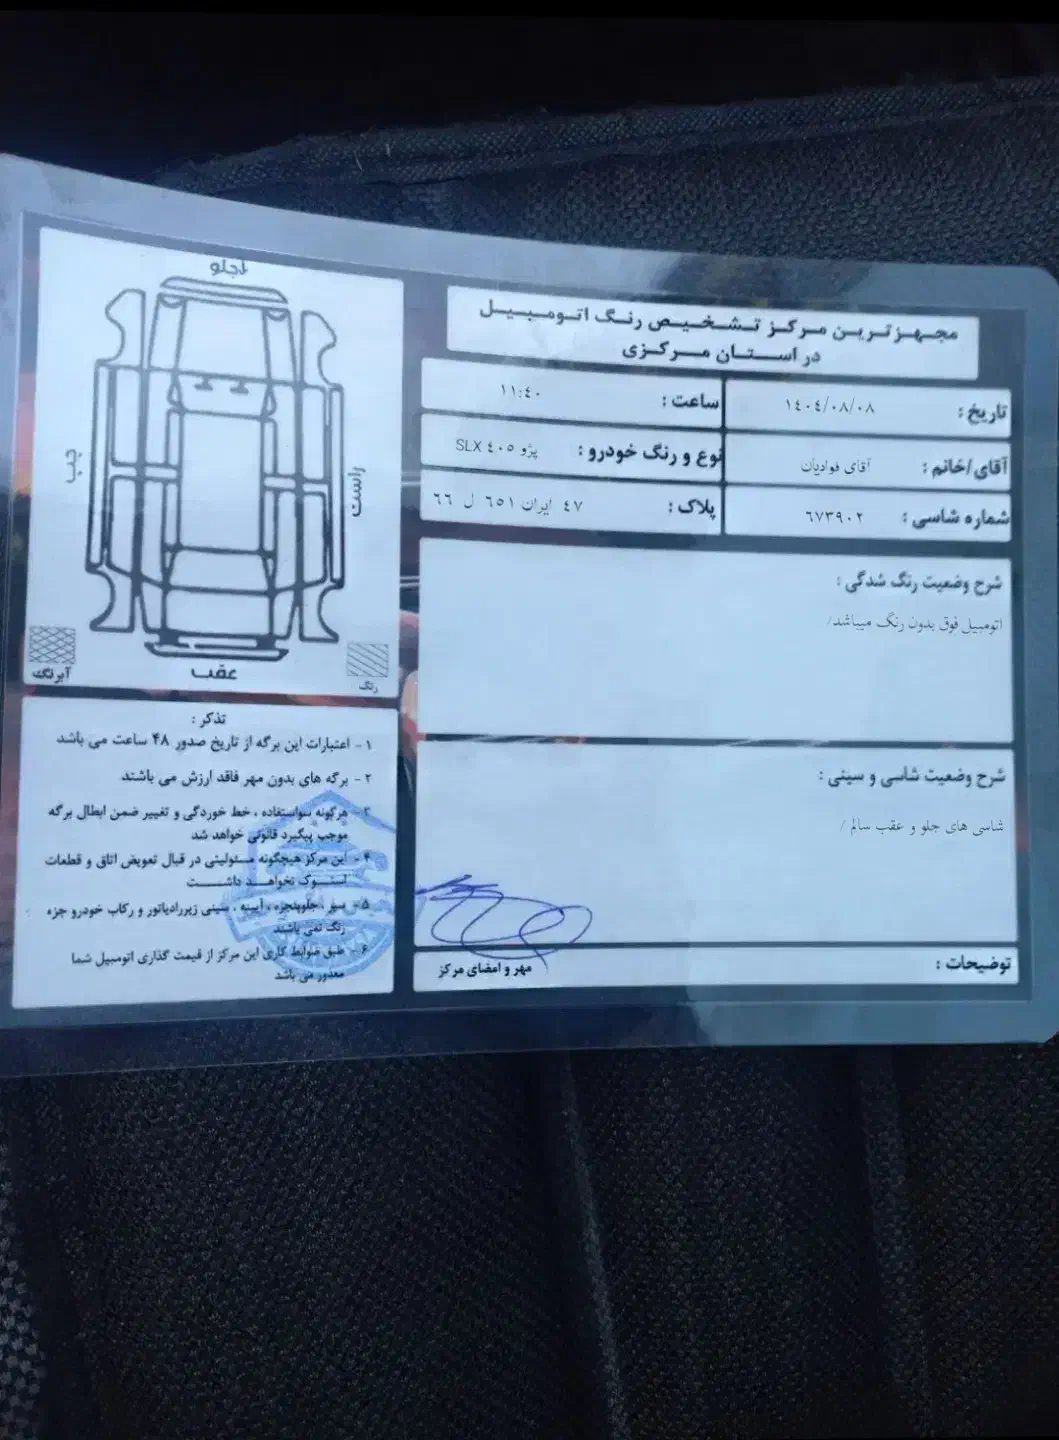 مجهزترین مرکز تشخیص رنگ اتومبیل
در استان مرکزی
تاریخ : ۱٤۰٤/۰۸/۰۸
ساعت : ۱۱:٤۰
آقای/خانم : آقای فوادیان
نوع و رنگ خودرو : پژو ٤۰٥ SLX
شماره شاسی : ٦۷۳۹۰۲
پلاک : ٤۷ ایران ٦٥۱ ل ٦٦
شرح وضعیت رنگ شدگی :
اتومبیل فوق بدون رنگ میباشد/
شرح وضعیت شاسی و سینی :
شاسی های جلو و عقب سالم /
توضیحات :
مهر و امضای مرکز
جلو
چپ
راست
عقب
رنگ
آبرنگ
تذکر :
۱- اعتبارات این برگه از تاریخ صدور ۴۸ ساعت می باشد
۲- برگه های بدون مهر فاقد ارزش می باشند
۳- هرگونه سواستفاده ، خط خوردگی و تغییر ضمن ابطال برگه
موجب پیگیرد قانونی خواهد شد
۴- این مرکز هیچگونه مسئولیتی در قبال تعویض اتاق و قطعات
استوک نخواهد داشت
۵- سپر ، جلوپنجره ، آیینه ، سینی زیررادیاتور و رکاب خودرو جزء
رنگ نمی باشند
۶- طبق ضوابط کاری این مرکز از قیمت گذاری اتومبیل شما
معذور می باشد